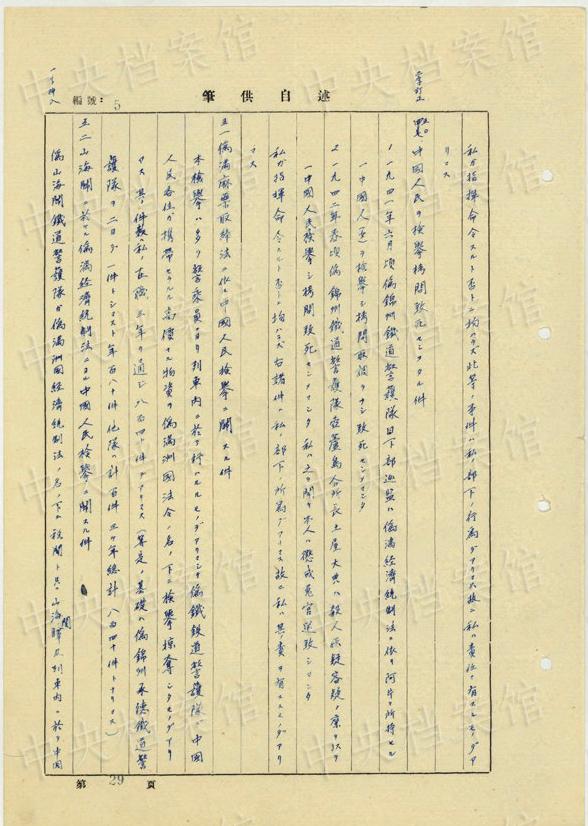 筆供自述
編號: 5
一字挿入
一字訂正
私ガ指揮命令スルト否トニ拘ハラズ此等ノ事件ハ私ノ部下ノ行為デアリマス故ニ私ハ責任ヲ有スルモノデア
リマス
中國人民ヲ検挙拷問致死セシメタル件
1 一九四一年六月頃偽錦州鐵道警護隊目下部巡監ハ偽満経済統制法ニ依リ阿片ヲ所持セル
一中國人(男)ヲ検挙シ拷問取調ヲナシ致死セシメマシタ
2 一九四二年春頃偽錦州鐵道警護隊葫蘆島分所長土屋大典ハ殺人容疑ノ廉ヲ以テ
一中國人民検挙シ拷問致死セシメマシタ 私ハ之ヲ聞キ本人ハ懲戒免官処致シマシタ
私ガ指揮命令スルト否トニ拘ハラズ右諸件ハ私ノ部下ノ所為デアリマス故ニ私ハ其責ヲ有スルモノデアリ
マス
五一 偽満麻薬取締法ニ依ル中國人民検挙ニ関スル件
本検挙ハ多ク警乗員ニヨリ列車内ニ於テ行ハルルモノデアリマシテ偽鐵道警護隊ガ中國
人民各位ガ携帯セラルル高價ナル物資ヲ偽満洲國法令ノ名ノ下ニ検挙掠奪シタモノデアリ
マス 其ノ件数ハ私ノ在職三年ヲ通ジ八百四十件デアリマス(算定ノ基礎ハ偽錦州承德鐵道警
護隊ヲ二日ニ一件トシマスト年百八十件他隊ノ計百件三ヶ年総計八百四十件トナリマス)
五二 山海關ニ於ケル偽満経済統制法ニヨル中國人民検挙ニ関スル件
偽山海關鐵道警護隊ガ偽満洲國経済統制法ノ名ノ下ニ税関ト共ニ山海關驛及列車内ニ於テ中國
第 29 頁
中央档案馆